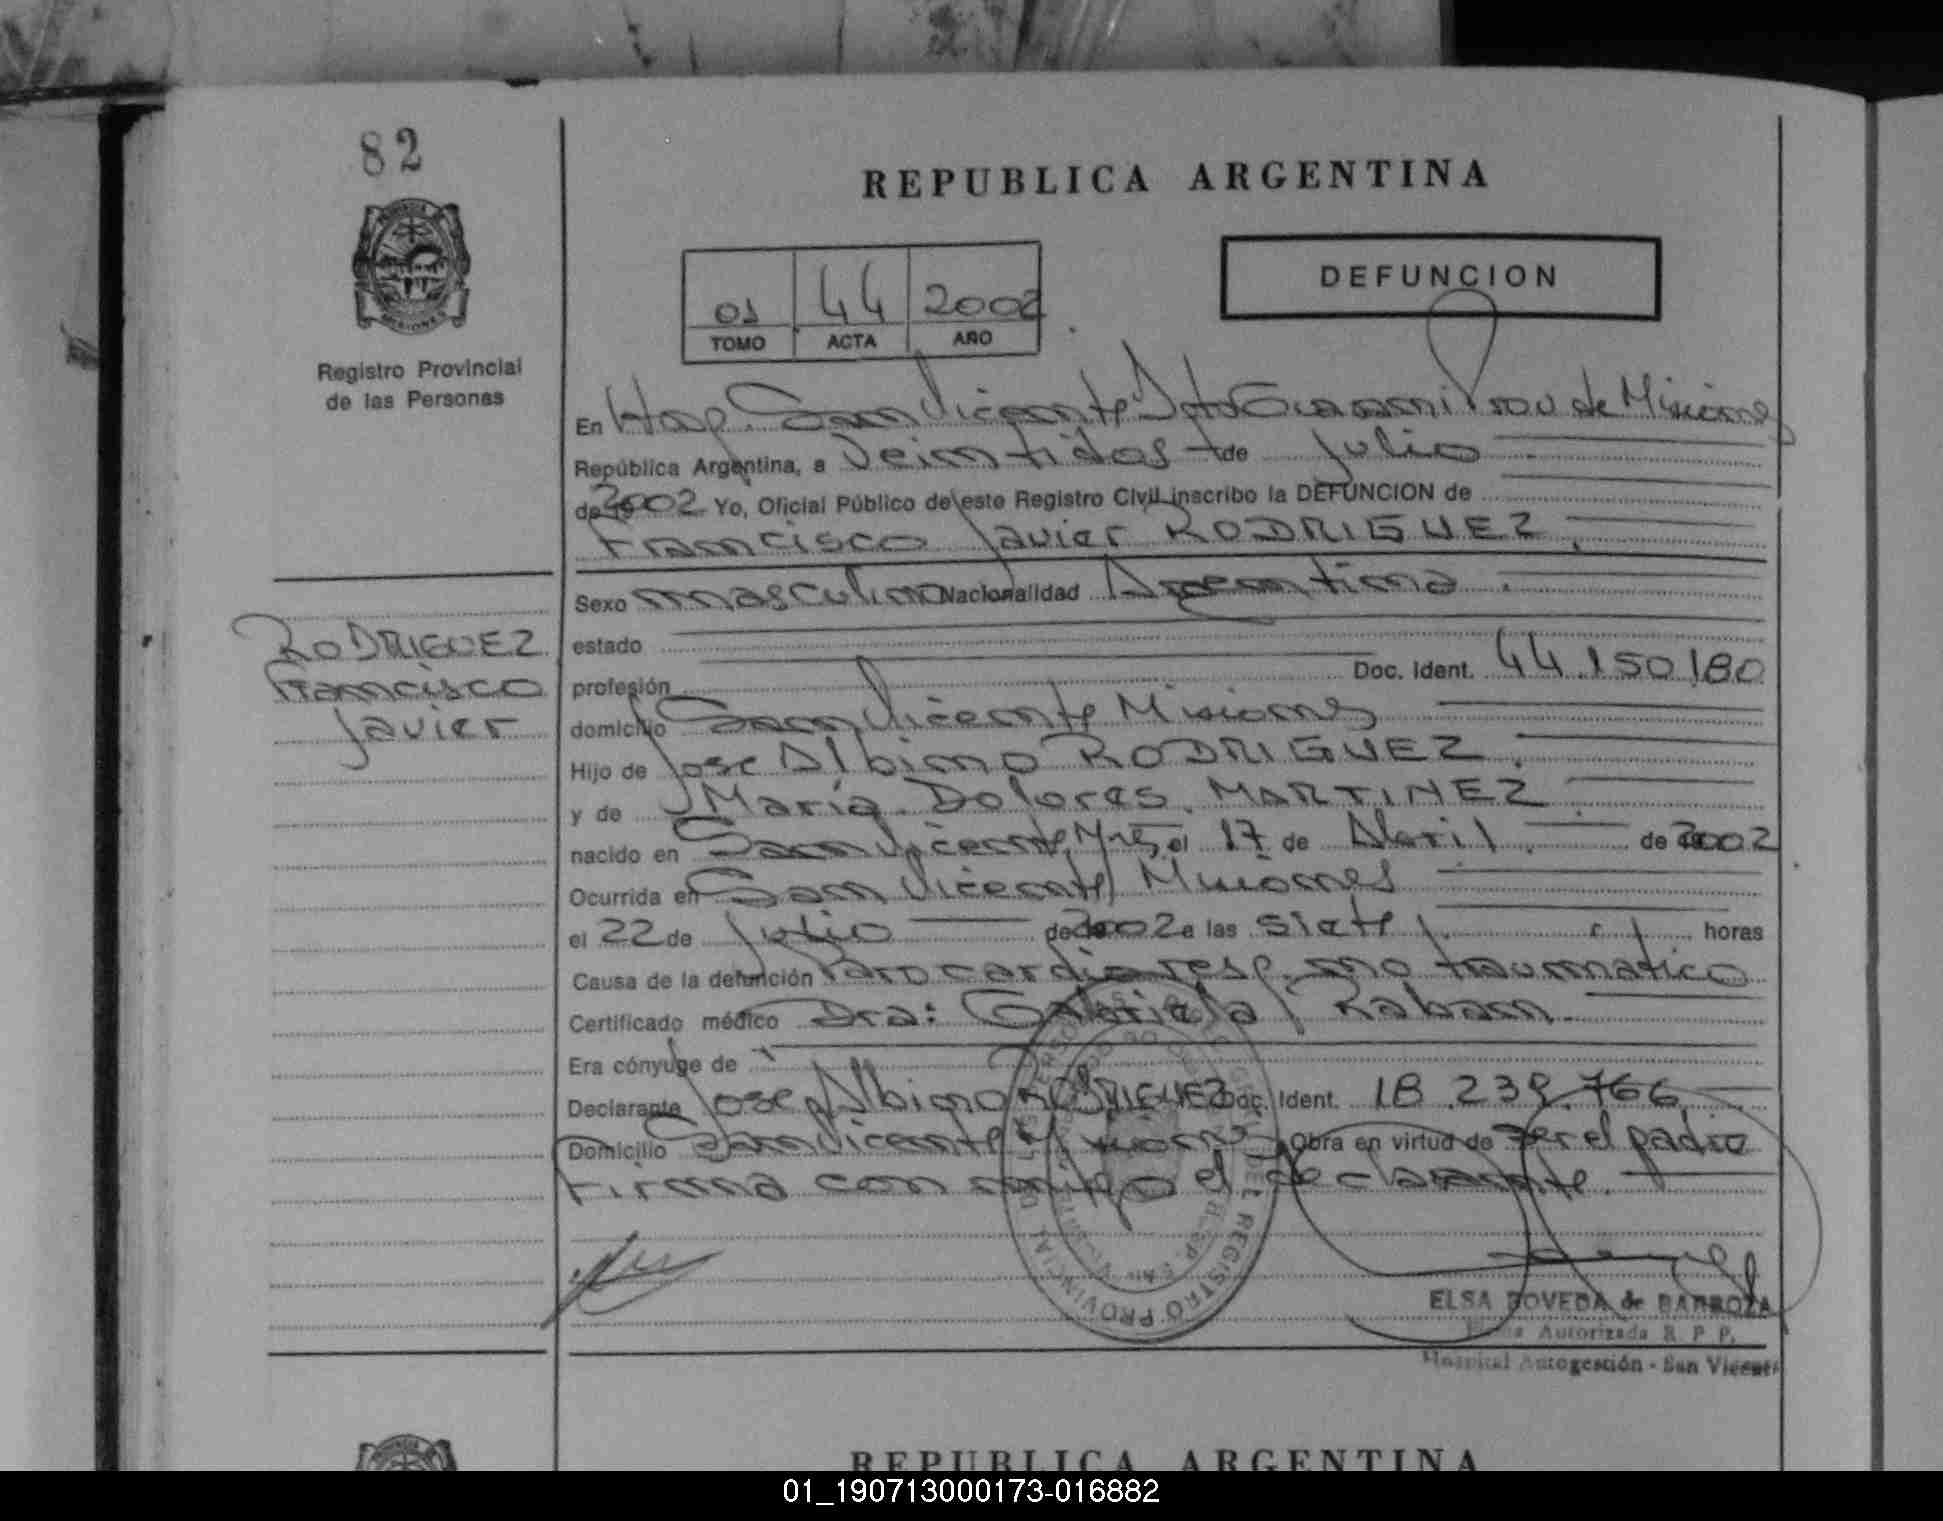 82
REPUBLICA ARGENTINA
DEFUNCION
01 44 2002
TOMO ACTA AÑO
Registro Provincial
de las Personas
En Hosp. San Vicente Dpto Guarani Prov de Misiones
República Argentina, a Veintidos de Julio
de 2002 Yo, Oficial Público de este Registro Civil inscribo la DEFUNCION de
Francisco Javier RODRIGUEZ.
RODRIGUEZ
Francisco
Javier
Sexo masculino Nacionalidad Argentina.
estado
profesión Doc. Ident. 44.150.180
domicilio San Vicente Misiones
Hijo de Jose Albino RODRIGUEZ.
y de Maria Dolores MARTINEZ.
nacido en San Vicente, Mnes, el 17 de Abril. de 2002
Ocurrida en San Vicente, Misiones
el 22 de Julio de 2002 a las siete horas
Causa de la defunción Paro cardio resp. no traumatico
Certificado médico Dra: Gabriela Raban.
Era cónyuge de
Declarante Jose Albino RODRIGUEZ Doc. Ident. 18.239.766
Domicilio San Vicente Misiones Obra en virtud de ser el padre
Firma con migo el declarante.
ELSA BOVEDA de BARBOZA
Firma Autorizada R. P. P.
Hospital Autogestión - San Vicente
REPUBLICA ARGENTINA
01_190713000173-016882